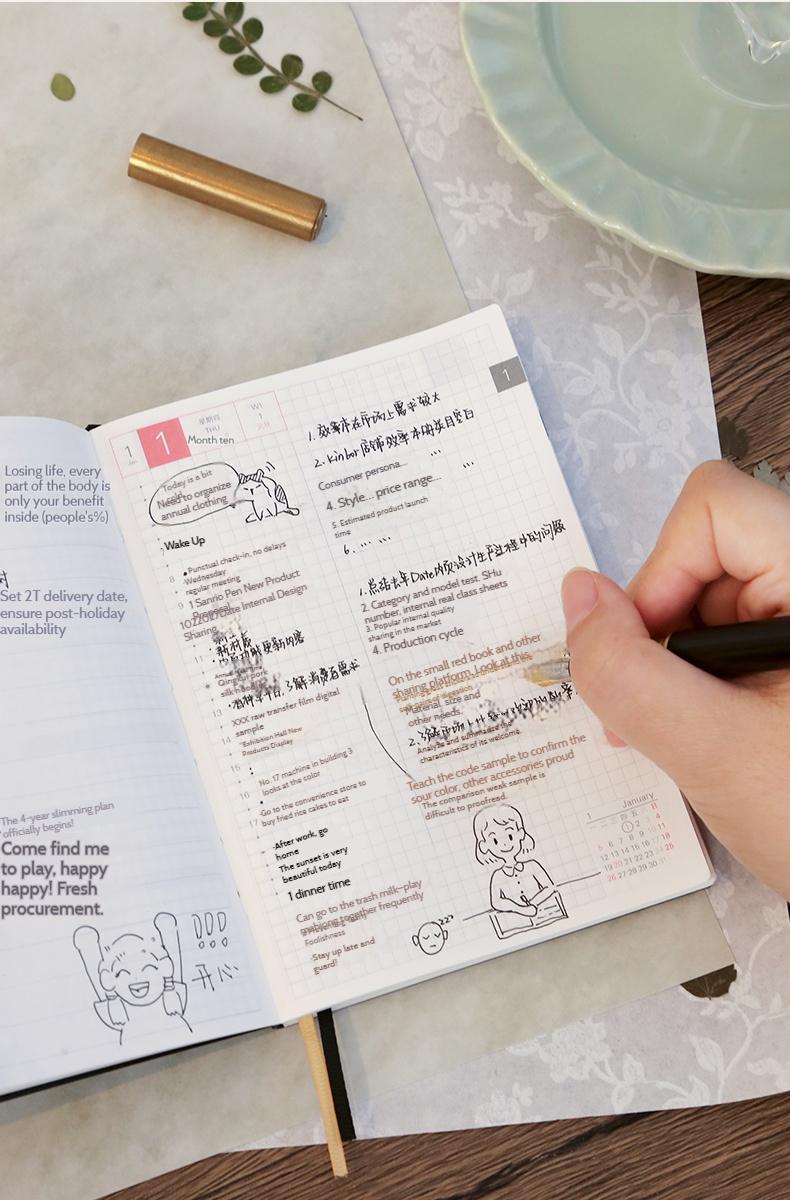 Losing life, every
part of the body is
only your benefit
inside (people's%)
Set 2T delivery date,
ensure post-holiday
availability
The 4-year slimming plan
officially begins!
Come find me
to play, happy
happy! Fresh
procurement.
开心
1
Jan
1
星期四
THU
Month ten
1
Today is a bit
Need to organize
annual clothing
Wake Up
8
Punctual check-in, no delays
Wednesday
regular meeting
9
1 Sanrio Pen New Product
Proposal
Internal Design
Sharing
11
13
解消费者需求
XXX raw transfer film digital
sample
14
Exhibition Hall New
Products Display
15
No. 17 machine in building 3
looks at the color
16
Go to the convenience store to
buy fried rice cakes to eat
17
After work, go
home
The sunset is very
beautiful today
1 dinner time
Can go to the trash milk-play
mahjong together frequently
Foolishness
Stay up late and
guard!
1
1. 效率本在市场上需求较大
2. kinbor店铺效率本的类目空白
Consumer persona...
4. Style... price range...
5. Estimated product launch
time
6. ... ...
1. 总结去年Date内页设计生产过程中的问题
2. Category and model test. SHu
number, internal real class sheets
3. Popular internal quality
sharing in the market
4. Production cycle
On the small red book and other
sharing platform, Look at this
Material, size and
other needs.
2.
Analyze and summarize the
characteristics of its welcome.
Teach the code sample to confirm the
sour color, other accessories proud
The comparison weak sample is
difficult to proofread.
zzz
1 January
一 二 三 四 五 六 日
1 2 3 4
5 6 7 8 9 10 11
12 13 14 15 16 17 18
19 20 21 22 23 24 25
26 27 28 29 30 31